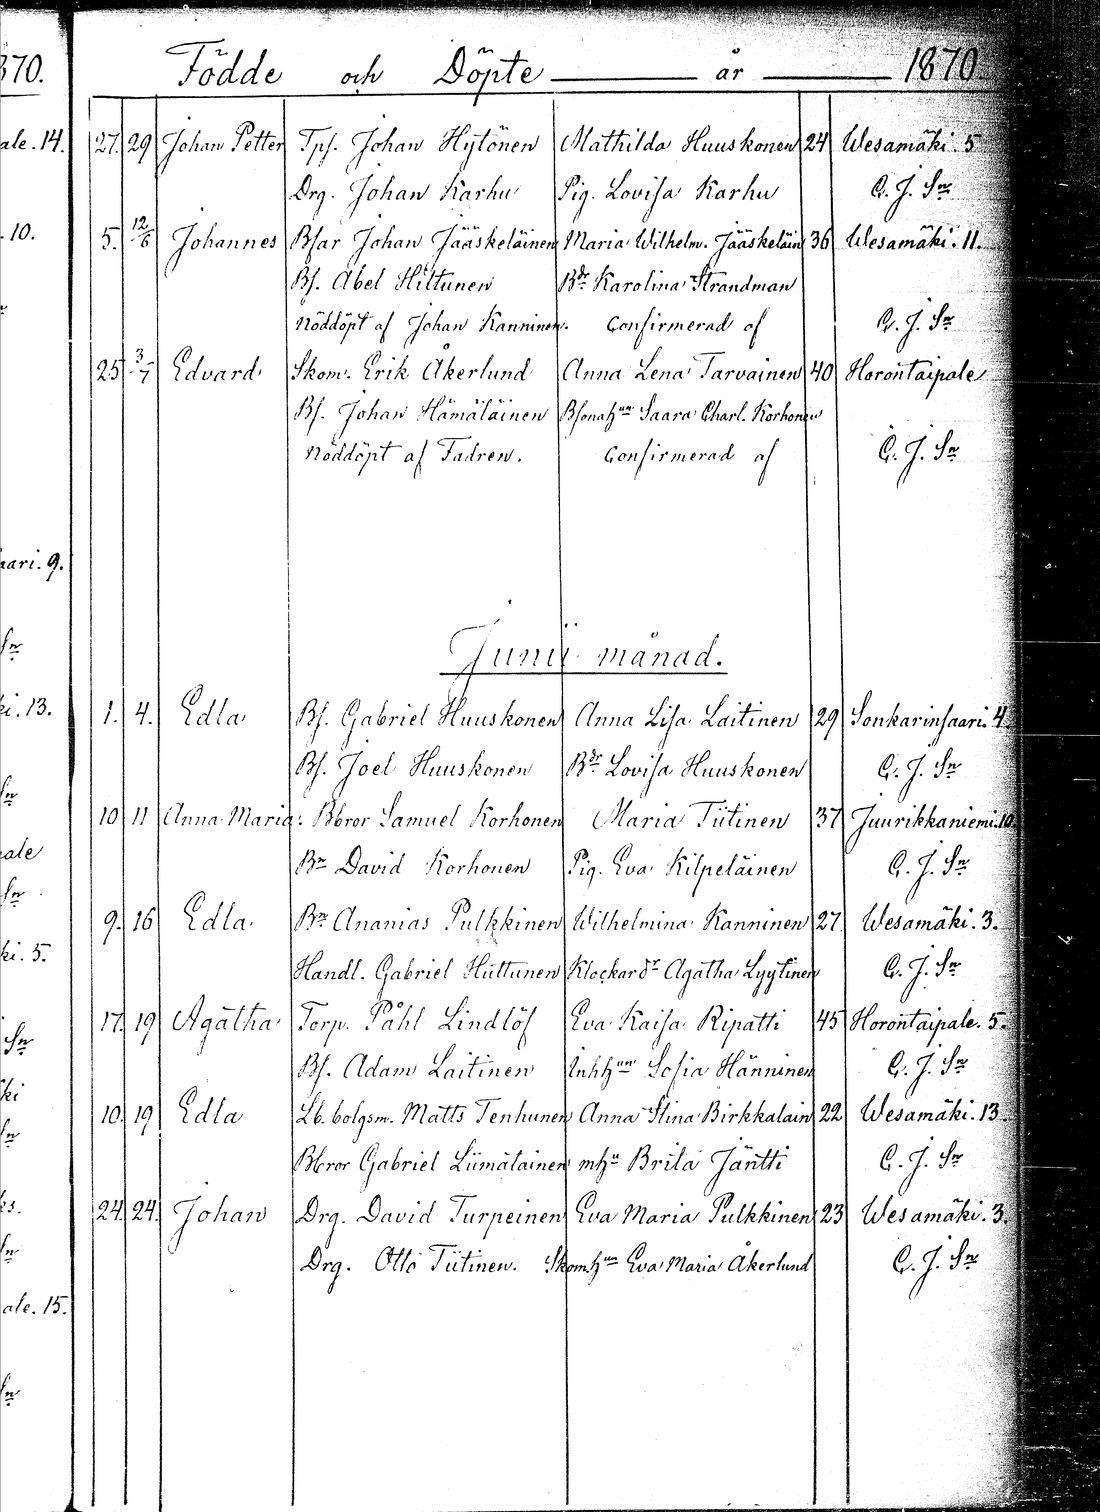 370.
Födde och Döpte år 1870
ale. 14.
27. 29 Johan Petter Tpf. Johan Hytönen Mathilda Huuskonen 24 Wesamäki. 5
Drg. Johan Karhu Pig. Lovisa Karhu C. J. Sn
. 10.
5. 12/6 Johannes Bfar Johan Jääskeläinen Maria Wilhelm. Jääskeläin 36 Wesamäki. 11.
Bf. Abel Hiltunen Bdr Karolina Strandman
Nöddöpt af Johan Kanninen. Confirmerad af C. J. Sn
25 3/7 Edvard Skom. Erik Åkerlund Anna Lena Tarvainen 40 Horontaipale
Bf. Johan Hämäläinen Bfonahun Saara Charl. Korhonen
Nöddöpt af Fadren. Confirmerad af C. J. Sn
aari. 9.
Junii månad.
Sn
ki. 13.
1. 4. Edla Bf. Gabriel Huuskonen Anna Lisa Laitinen 29 Sonkarinsaari. 4
Bf. Joel Huuskonen Bdr Lovisa Huuskonen C. J. Sn
Sn
10 11 Anna Maria Bbror Samuel Korhonen Maria Tiitinen 37 Juurikkaniemi. 10
ale
Bn David Korhonen Pig. Eva Kilpeläinen C. J. Sn
Sn
9. 16 Edla Bn Ananias Pulkkinen Wilhelmina Kanninen 27 Wesamäki. 3.
ki. 5.
Handl. Gabriel Huttunen Klockardr Agatha Lyytinen C. J. Sn
17. 19 Agatha Torp. Påhl Lindlöf Eva Kaisa Ripatti 45 Horontaipale. 5.
Sn
Bf. Adam Laitinen Inhhun Sofia Hänninen C. J. Sn
ki
10. 19 Edla Lb. bolgsm. Matts Tenhunen Anna Stina Birkkalain 22 Wesamäki. 13
Sn
Bbror Gabriel Liimatainen mhu Brita Jäntti C. J. Sn
24. 24. Johan Drg. David Turpeinen Eva Maria Pulkkinen 23 Wesamäki. 3.
Sn
Drg. Otto Tiitinen. Skom.hun Eva Maria Åkerlund C. J. Sn
ale. 15.
Sn